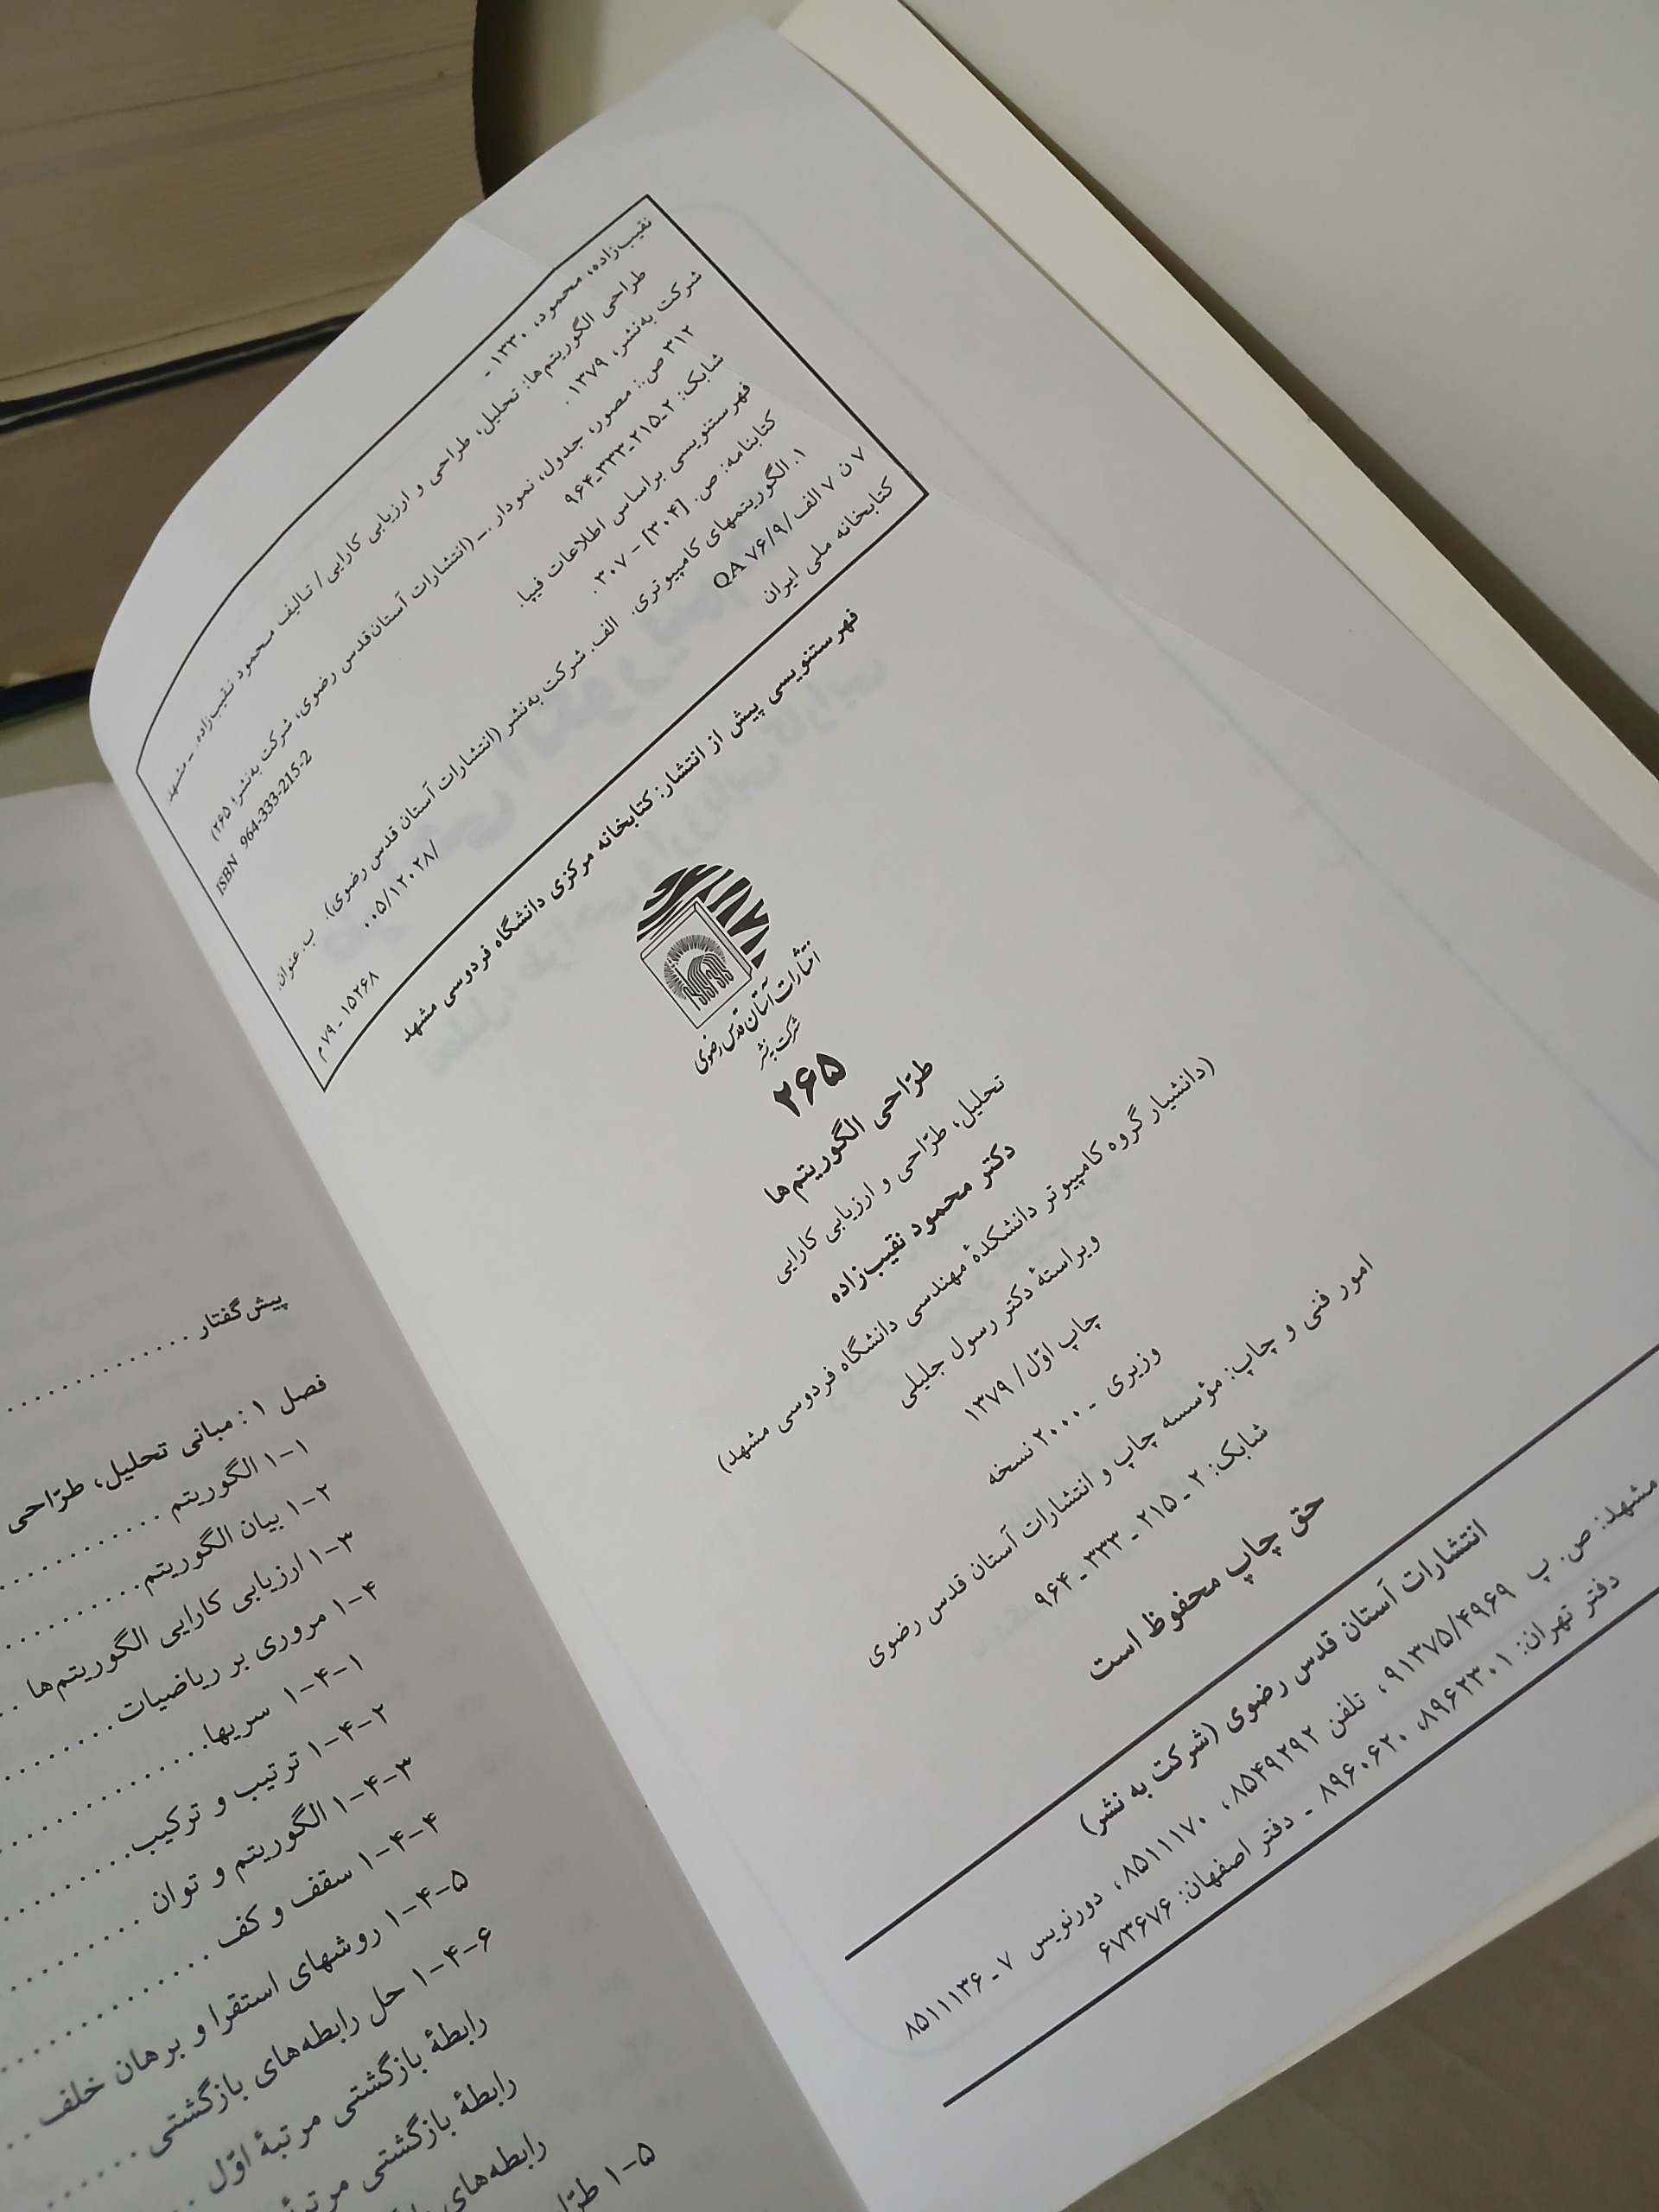 نقیب‌زاده، محمود، ۱۳۳۰ ـ
طراحی الگوریتم‌ها: تحلیل، طراحی و ارزیابی کارایی / تالیف محمود نقیب‌زاده. ـ مشهد:
شرکت به‌نشر، ۱۳۷۹.
۳۱۲ ص.: مصور، جدول، نمودار .ـ (انتشارات آستان‌قدس رضوی، شرکت به‌نشر؛ ۲۶۵)
شابک: ۲ـ۲۱۵ـ۳۳۳ـ۹۶۴ ISBN 964-333-215-2
فهرستنویسی براساس اطلاعات فیپا.
کتابنامه: ص. [۳۰۴] - ۳۰۷.
۱. الگوریتمهای کامپیوتری. الف. شرکت به‌نشر (انتشارات آستان قدس رضوی). ب. عنوان.
۷ ن ۷ الف/ ۷۶/۹ QA ۰۰۵/۱۲۰۲۸/
کتابخانه ملی ایران ۱۵۲۶۸ ـ ۷۹ م
فهرستنویسی پیش از انتشار: کتابخانه مرکزی دانشگاه فردوسی مشهد
انتشارات آستان قدس رضوی
شرکت به نشر
۲۶۵
طرّاحی الگوریتم‌ها
تحلیل، طرّاحی و ارزیابی کارایی
دکتر محمود نقیب‌زاده
(دانشیار گروه کامپیوتر دانشکدهٔ مهندسی دانشگاه فردوسی مشهد)
ویراستهٔ دکتر رسول جلیلی
چاپ اوّل/ ۱۳۷۹
وزیری ـ ۲۰۰۰ نسخه
امور فنی و چاپ: مؤسسه چاپ و انتشارات آستان قدس رضوی
شابک: ۲ ـ ۲۱۵ ـ ۳۳۳ ـ ۹۶۴
حق چاپ محفوظ است
انتشارات آستان قدس رضوی (شرکت به نشر)
مشهد: ص. پ ۹۱۳۷۵/۴۹۶۹، تلفن ۸۵۴۹۲۹۲، ۸۵۱۱۱۷۰، دورنویس ۷ ـ ۸۵۱۱۱۳۶
دفتر تهران: ۸۹۶۲۳۰۱، ۸۹۶۰۶۲۰ ـ دفتر اصفهان: ۶۷۳۶۷۶
پیش‌گفتار ............
فصل ۱ : مبانی تحلیل، طرّاحی
۱-۱ الگوریتم ............
۱-۲ بیان الگوریتم ............
۱-۳ ارزیابی کارایی الگوریتم‌ها ..
۱-۴ مروری بر ریاضیات .......
۱-۴-۱ سریها ............
۱-۴-۲ ترتیب و ترکیب ........
۱-۴-۳ الگوریتم و توان ........
۱-۴-۴ سقف و کف ............
۱-۴-۵ روشهای استقرا و برهان خلف ..
۱-۴-۶ حل رابطه‌های بازگشتی ......
رابطهٔ بازگشتی مرتبهٔ اوّل ..
رابطهٔ بازگشتی
رابطه‌های
۱-۵